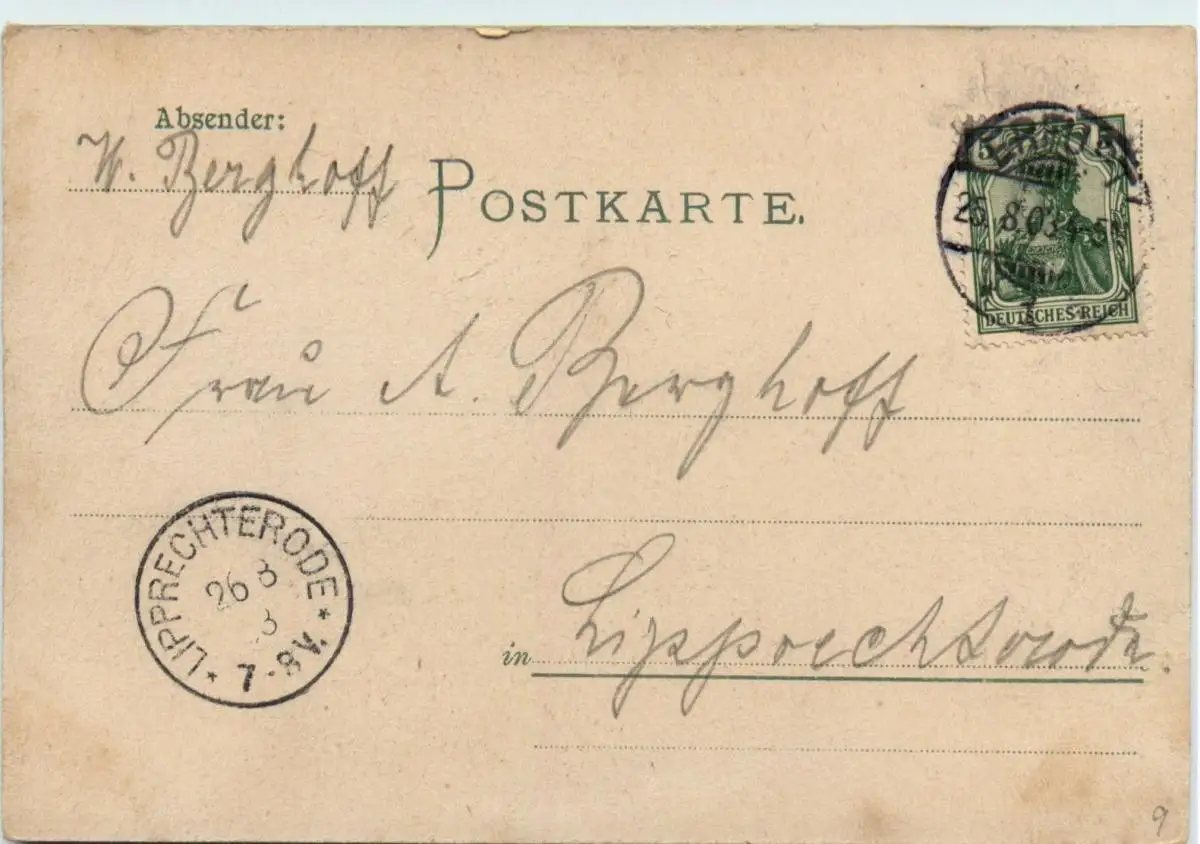 Absender:
W. Berghoff
POSTKARTE.
25.8.03
DEUTSCHES REICH
Frau A. Berghoff
LIPPRECHTERODE
26 8
3
7-8V.
in Lipprechterode.
9